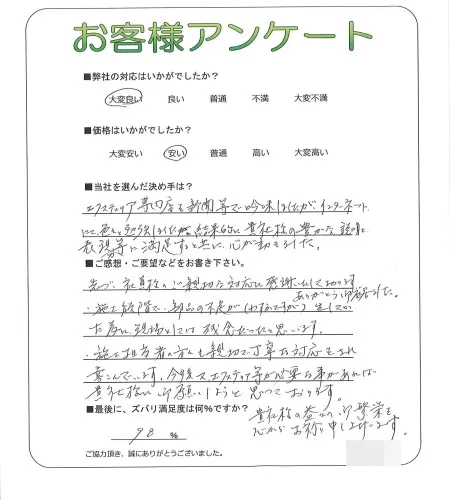 お客様アンケート
■弊社の対応はいかがでしたか?
大変良い 良い 普通 不満 大変不満
■価格はいかがでしたか?
大変安い 安い 普通 高い 大変高い
■当社を選んだ決め手は?
エクステリア専門店を新聞等で吟味しましたがインターネット
にて色々勉強しました結果的に貴社様の豊かな説明と
表現等に満足すると共に、心が動きました。
■ご感想・ご要望などをお書き下さい。
先づ、社員様のご親切な対応に感謝いたして居ります
ありがとう御座居ました。
・施工段階で、部品の不足が(わずかですが)生じてい
た為に、現場としては残念だったと思います。
・施工担当者の方も親切で丁寧な対応をされ
喜こんでいます。今後又、エクステリア等が必要な事があれば
貴社様にお願いしようと思っております。
■最後に、ズバリ満足度は何%ですか?
貴社様の益々の御繁栄を
心からお祈り申し上げます。
98 %
ご協力頂き、誠にありがとうございました。